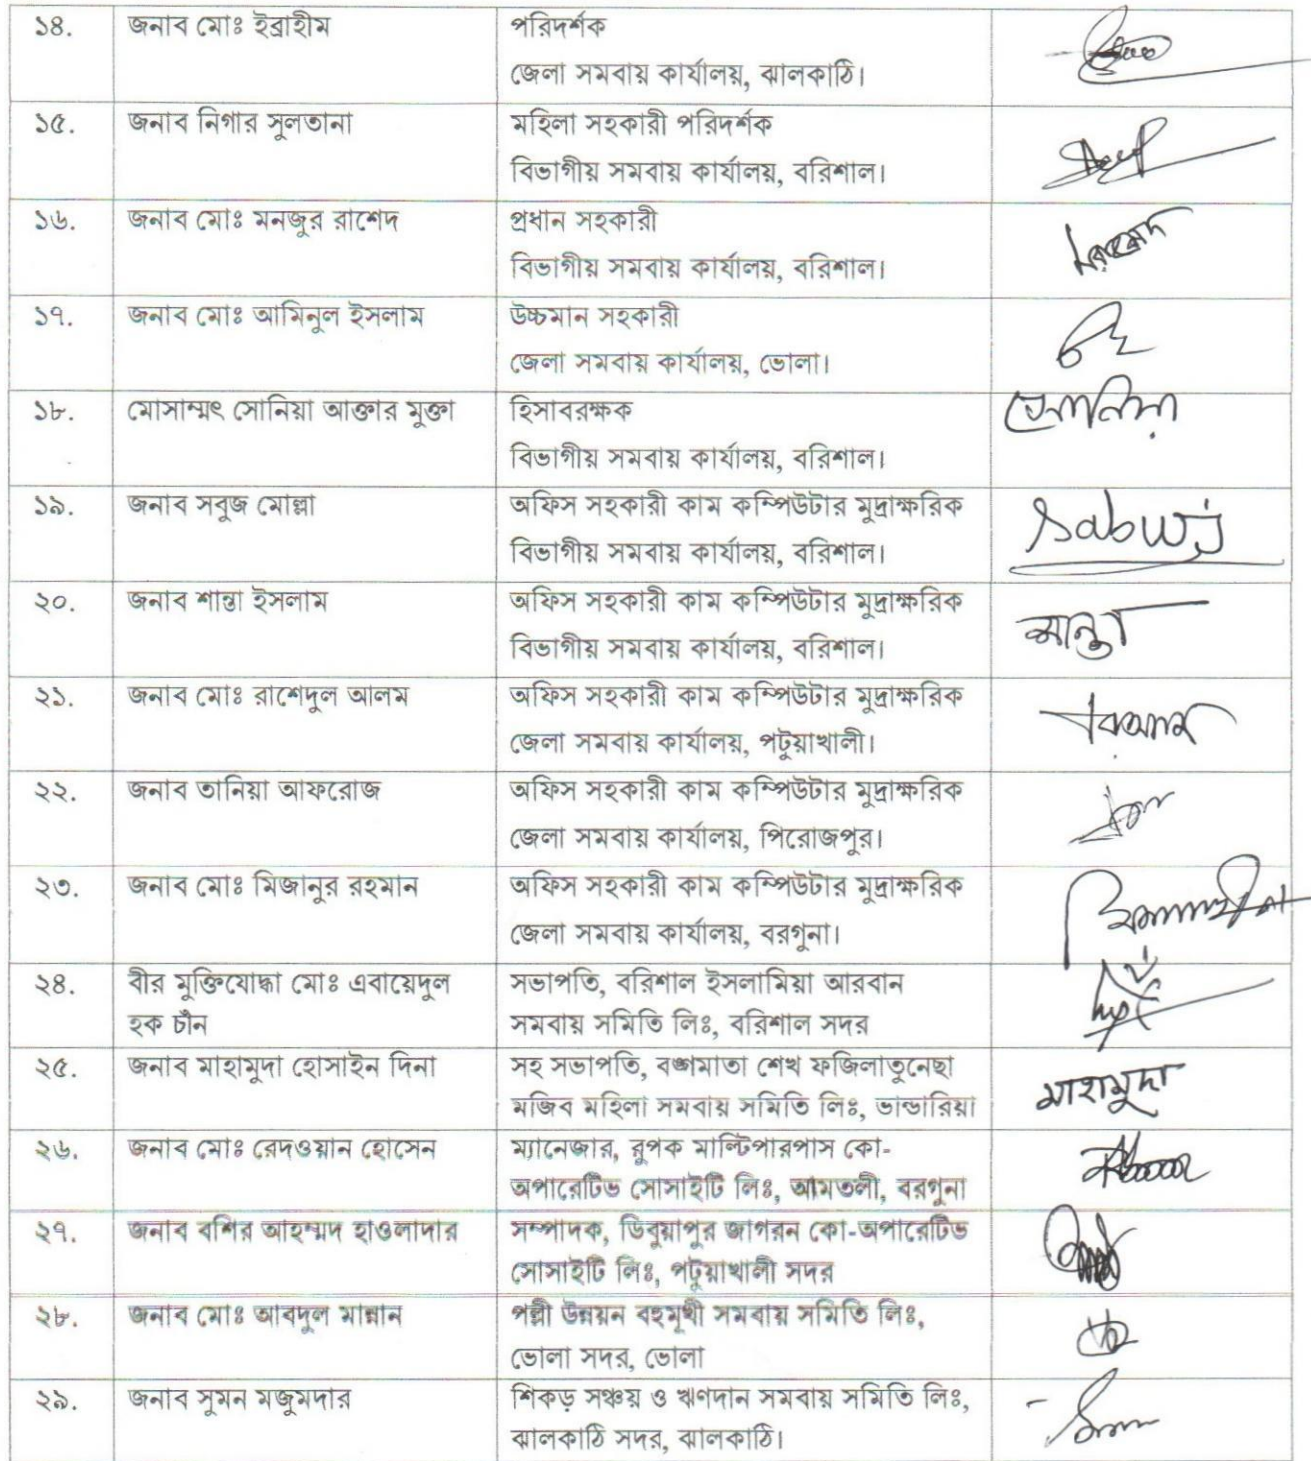 ১৪. জনাব মোঃ ইব্রাহীম পরিদর্শক
জেলা সমবায় কার্যালয়, ঝালকাঠি।
১৫. জনাব নিগার সুলতানা মহিলা সহকারী পরিদর্শক
বিভাগীয় সমবায় কার্যালয়, বরিশাল।
১৬. জনাব মোঃ মনজুর রাশেদ প্রধান সহকারী
বিভাগীয় সমবায় কার্যালয়, বরিশাল।
১৭. জনাব মোঃ আমিনুল ইসলাম উচ্চমান সহকারী
জেলা সমবায় কার্যালয়, ভোলা।
১৮. মোসাম্মৎ সোনিয়া আক্তার মুক্তা হিসাবরক্ষক সোনিয়া
বিভাগীয় সমবায় কার্যালয়, বরিশাল।
১৯. জনাব সবুজ মোল্লা অফিস সহকারী কাম কম্পিউটার মুদ্রাক্ষরিক Sabuj
বিভাগীয় সমবায় কার্যালয়, বরিশাল।
২০. জনাব শান্তা ইসলাম অফিস সহকারী কাম কম্পিউটার মুদ্রাক্ষরিক শান্তা
বিভাগীয় সমবায় কার্যালয়, বরিশাল।
২১. জনাব মোঃ রাশেদুল আলম অফিস সহকারী কাম কম্পিউটার মুদ্রাক্ষরিক
জেলা সমবায় কার্যালয়, পটুয়াখালী।
২২. জনাব তানিয়া আফরোজ অফিস সহকারী কাম কম্পিউটার মুদ্রাক্ষরিক
জেলা সমবায় কার্যালয়, পিরোজপুর।
২৩. জনাব মোঃ মিজানুর রহমান অফিস সহকারী কাম কম্পিউটার মুদ্রাক্ষরিক
জেলা সমবায় কার্যালয়, বরগুনা।
২৪. বীর মুক্তিযোদ্ধা মোঃ এবায়েদুল সভাপতি, বরিশাল ইসলামিয়া আরবান
হক চাঁন সমবায় সমিতি লিঃ, বরিশাল সদর
২৫. জনাব মাহামুদা হোসাইন দিনা সহ সভাপতি, বঙ্গমাতা শেখ ফজিলাতুনেছা
মজিব মহিলা সমবায় সমিতি লিঃ, ভান্ডারিয়া মাহামুদা
২৬. জনাব মোঃ রেদওয়ান হোসেন ম্যানেজার, রুপক মাল্টিপারপাস কো-
অপারেটিভ সোসাইটি লিঃ, আমতলী, বরগুনা
২৭. জনাব বশির আহম্মদ হাওলাদার সম্পাদক, ডিবুয়াপুর জাগরন কো-অপারেটিভ
সোসাইটি লিঃ, পটুয়াখালী সদর
২৮. জনাব মোঃ আবদুল মান্নান পল্লী উন্নয়ন বহুমূখী সমবায় সমিতি লিঃ,
ভোলা সদর, ভোলা
২৯. জনাব সুমন মজুমদার শিকড় সঞ্চয় ও ঋণদান সমবায় সমিতি লিঃ,
ঝালকাঠি সদর, ঝালকাঠি।